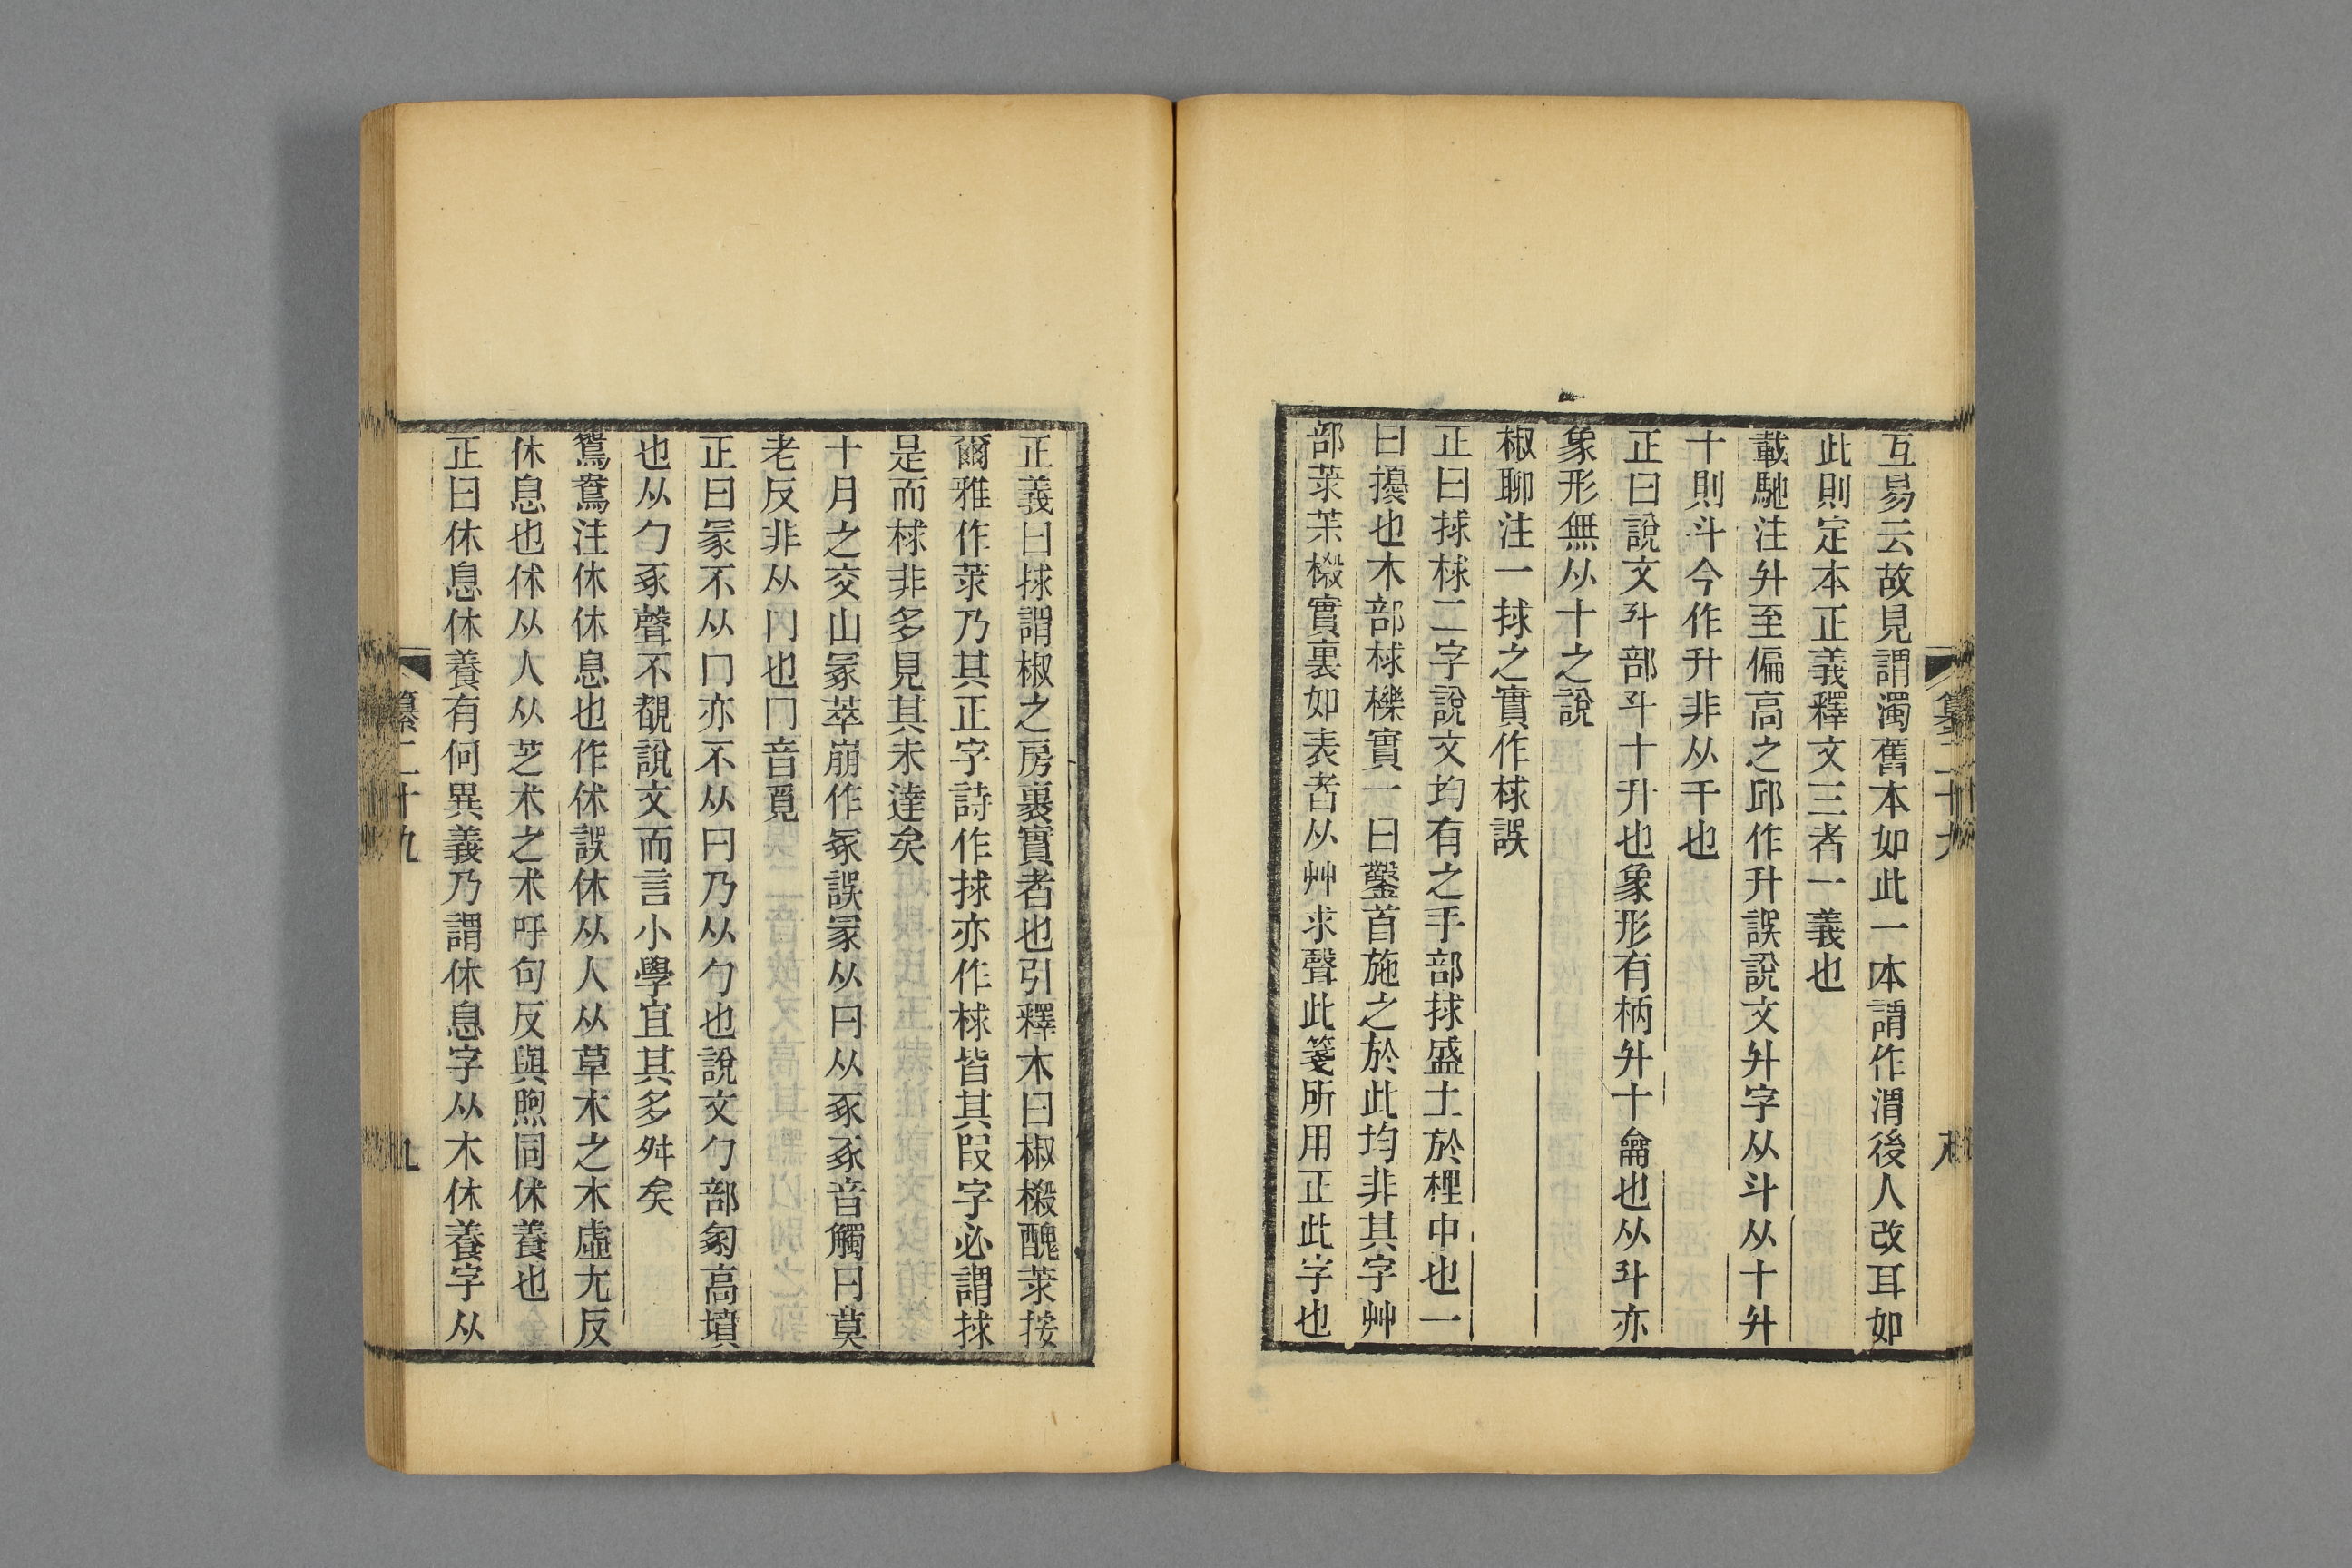 互易云故見謂濁舊本如此一本謂作渭後人改耳如
此則定本正義釋文三者一義也
載馳注升至偏高之邱作升誤說文升字从斗从十升
十則斗今作升非从干也
正曰說文斗部斗十升也象形有柄升十龠也从斗亦
象形無从十之說
椒聊注一捄之實作梂誤
正曰捄梂二字說文均有之手部捄盛土於梩中也一
曰擾也木部梂櫟實一曰鑿首施之於此均非其字艸
部莍茮樧實裏如表者从艸求聲此箋所用正此字也
纂二十九
八
正義曰捄謂椒之房裏實者也引釋木曰椒樧醜莍按
爾雅作莍乃其正字詩作捄亦作梂皆其叚字必謂捄
是而梂非多見其未達矣
十月之交山冢萃崩作冢誤冡从冃从豕豕音觸冃莫
老反非从冂也冂音覓
正曰冡不从冖亦不从曰乃从勹也說文勹部匑高墳
也从勹豖聲不覩說文而言小學宜其多舛矣
鴛鴦注休休息也作伏誤休从人从草木之木虛尤反
休息也㳜从人从芝术之术吁句反與煦同㳜養也
正曰休息休養有何異義乃謂休息字从木休養字从
纂二十九
九